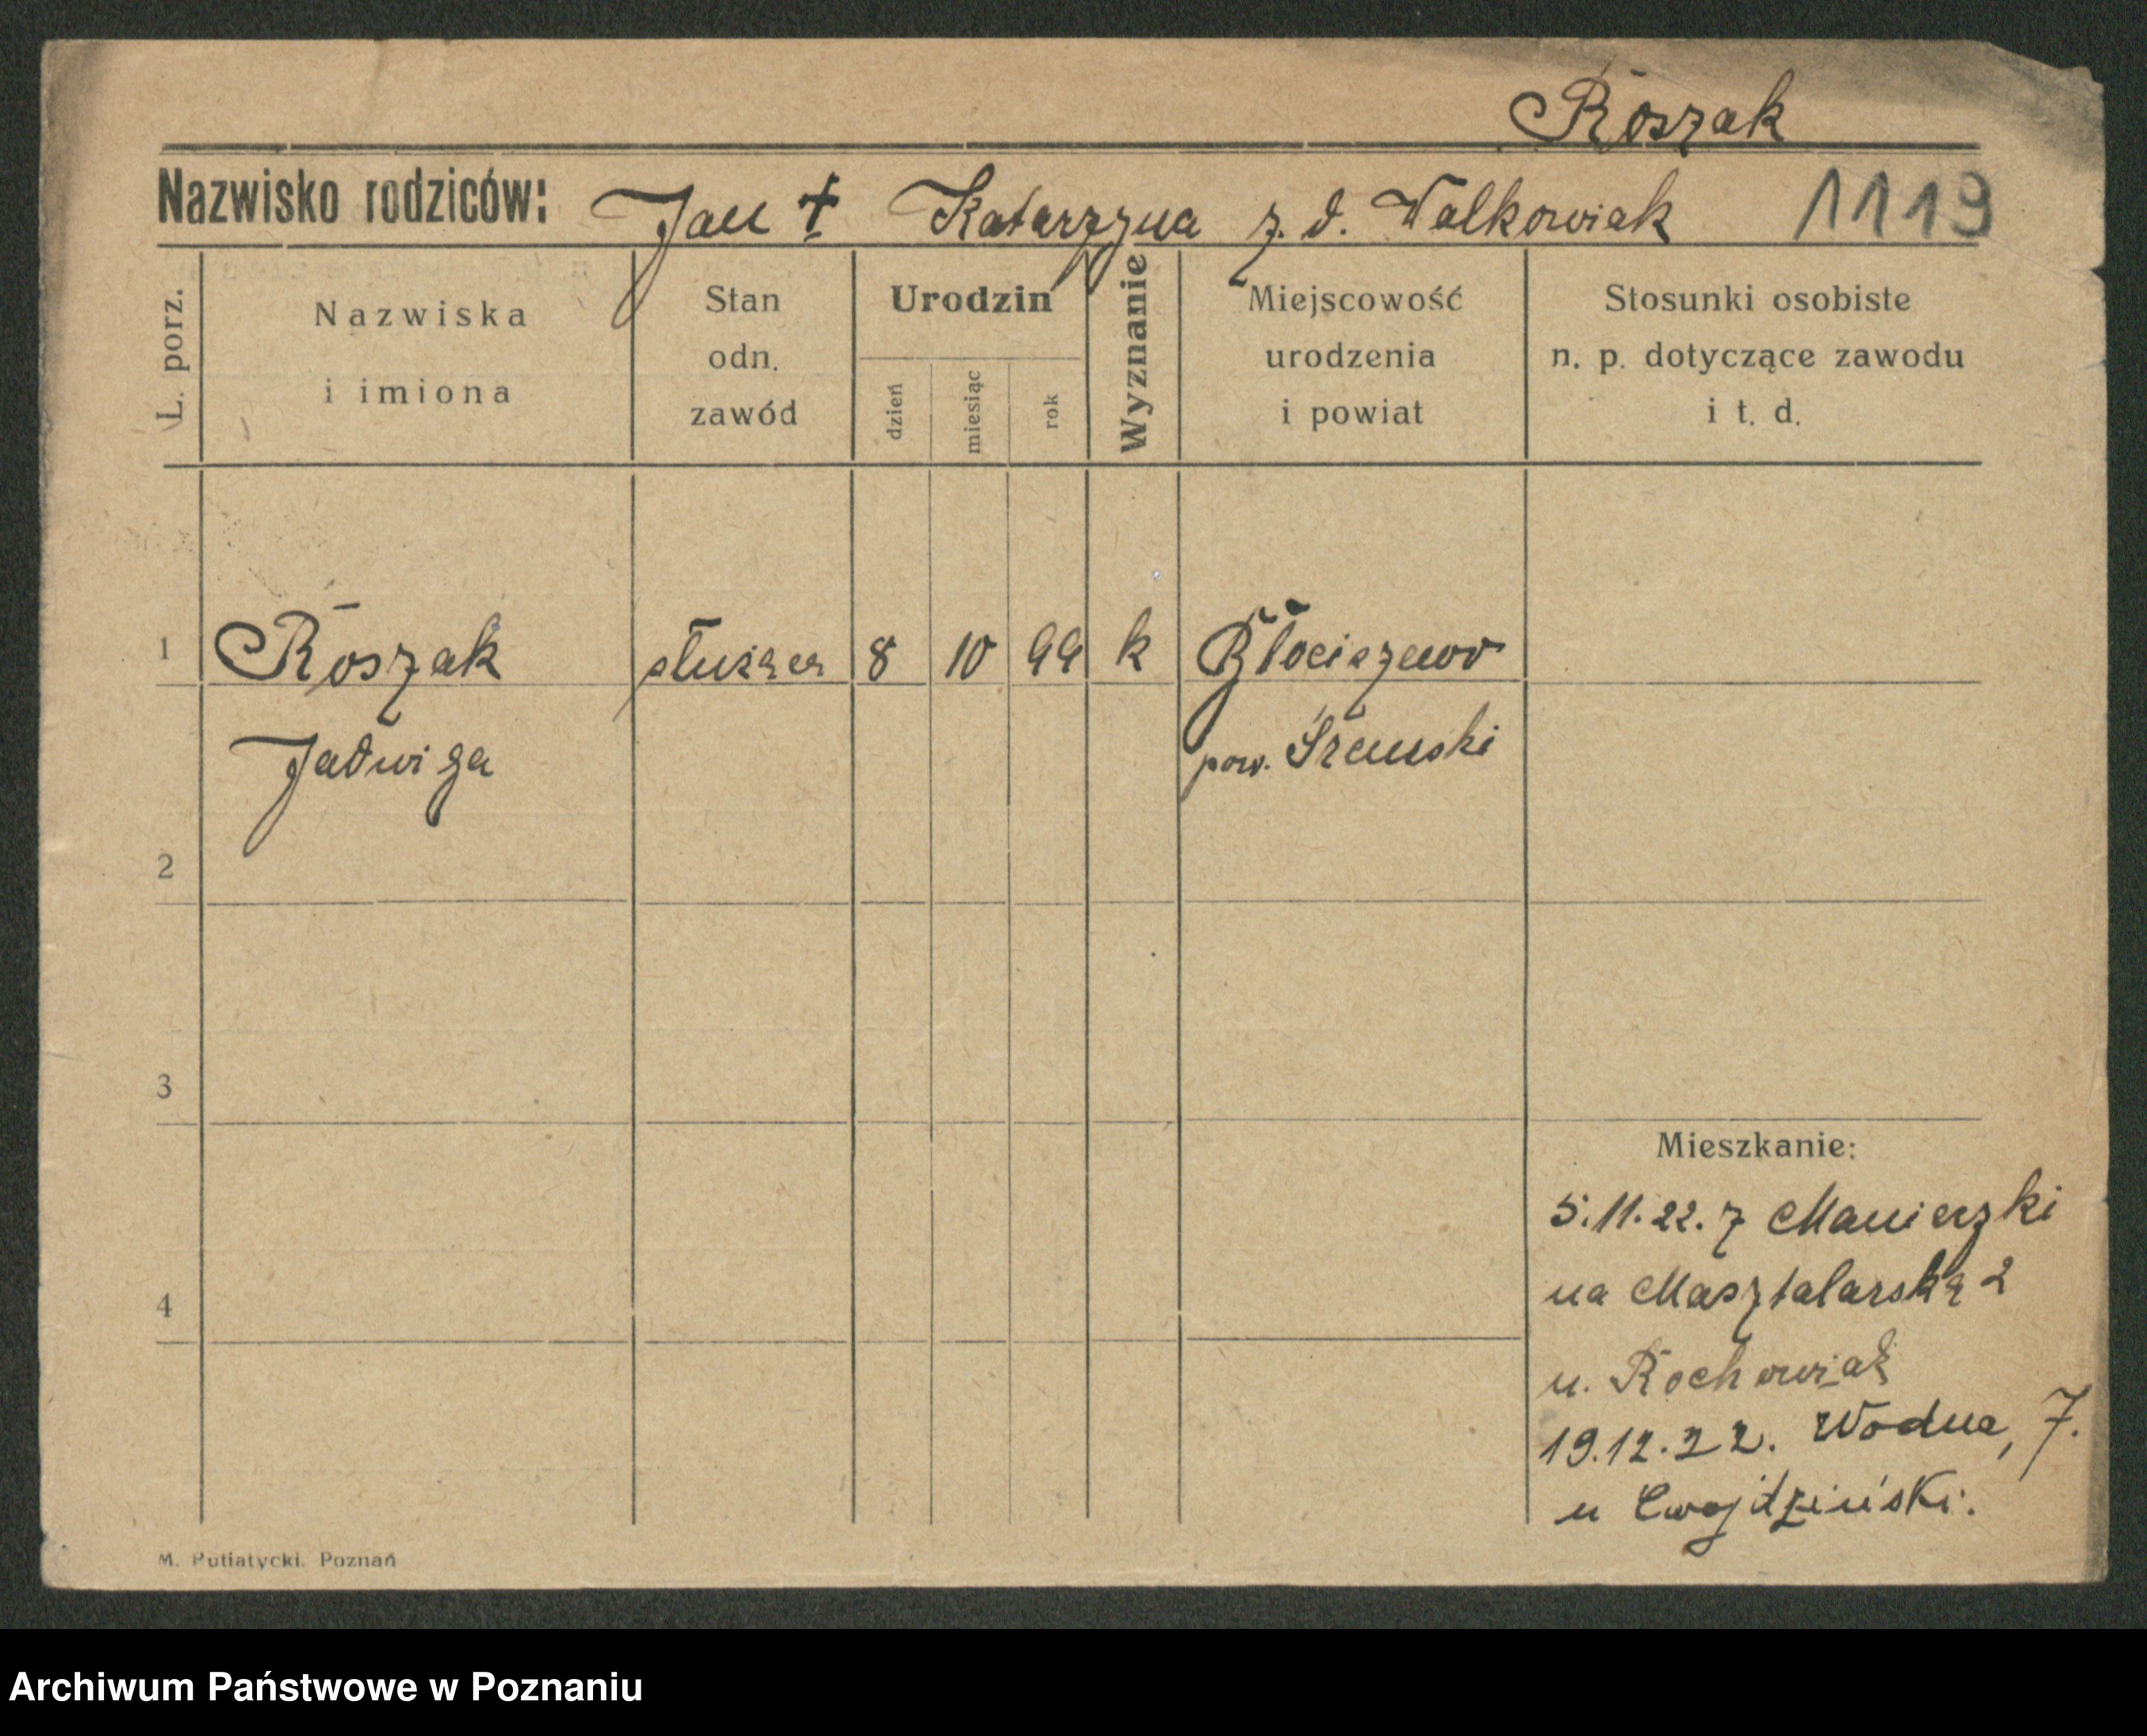 Roszak
Nazwisko rodziców: Jan + Katarzyna z. d. Walkowiak 1119
L. porz.
Nazwiska i imiona
Stan odn. zawód
Urodzin
dzień
miesiąc
rok
Wyznanie
Miejscowość urodzenia i powiat
Stosunki osobiste n. p. dotyczące zawodu i t. d.
1 Roszak służąca 8 10 99 k Błociszewo
Jadwiga pow. Śremski
2
3
4
Mieszkanie:
5.11.22. z Manieczki
na Masztalarską 2
u. Rochowiak
19.12.22. Wodna, 7.
u Cwojdziński.
M. Putiatycki. Poznań
Archiwum Państwowe w Poznaniu